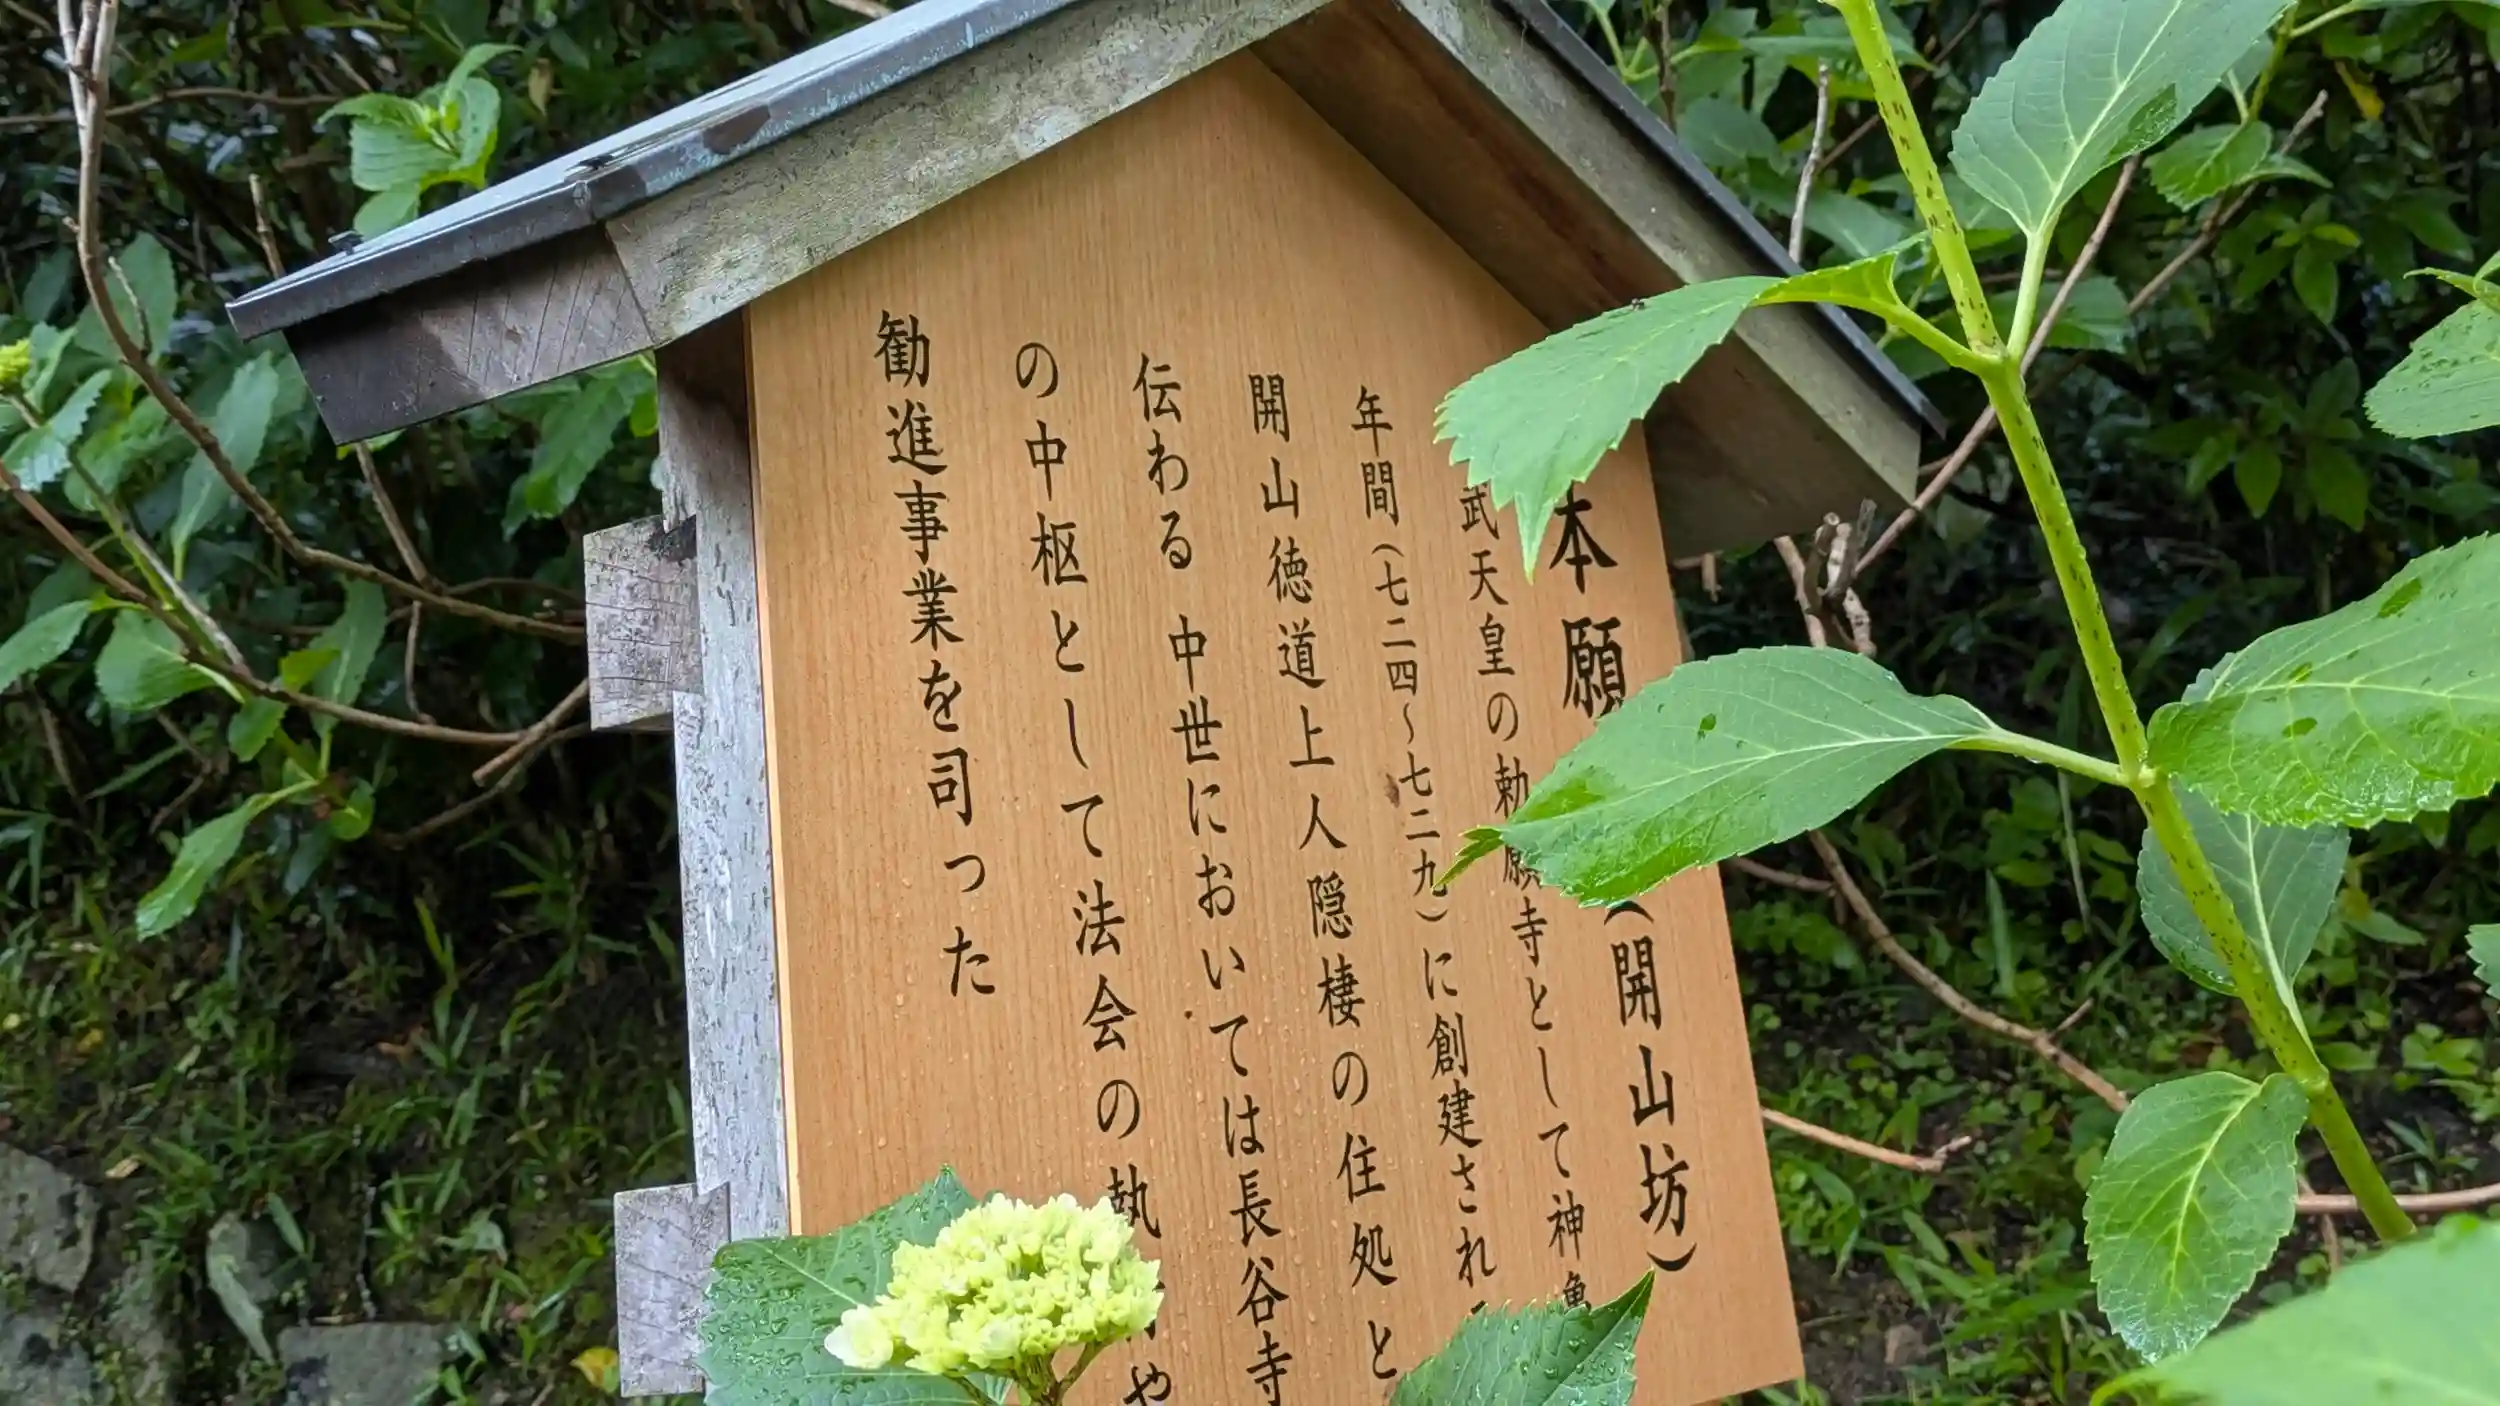 本願（開山坊）
武天皇の勅願寺として神亀
年間（七二四～七二九）に創建され
開山徳道上人隠棲の住処と
伝わる 中世においては長谷寺
の中枢として法会の執行や
勧進事業を司った